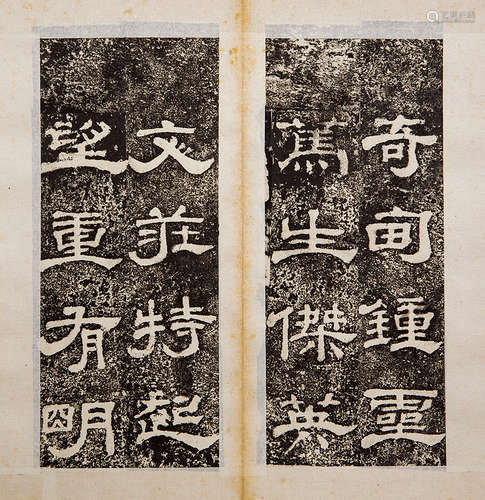 奇甸鍾靈
篤生傑英
文莊特起
望重有明